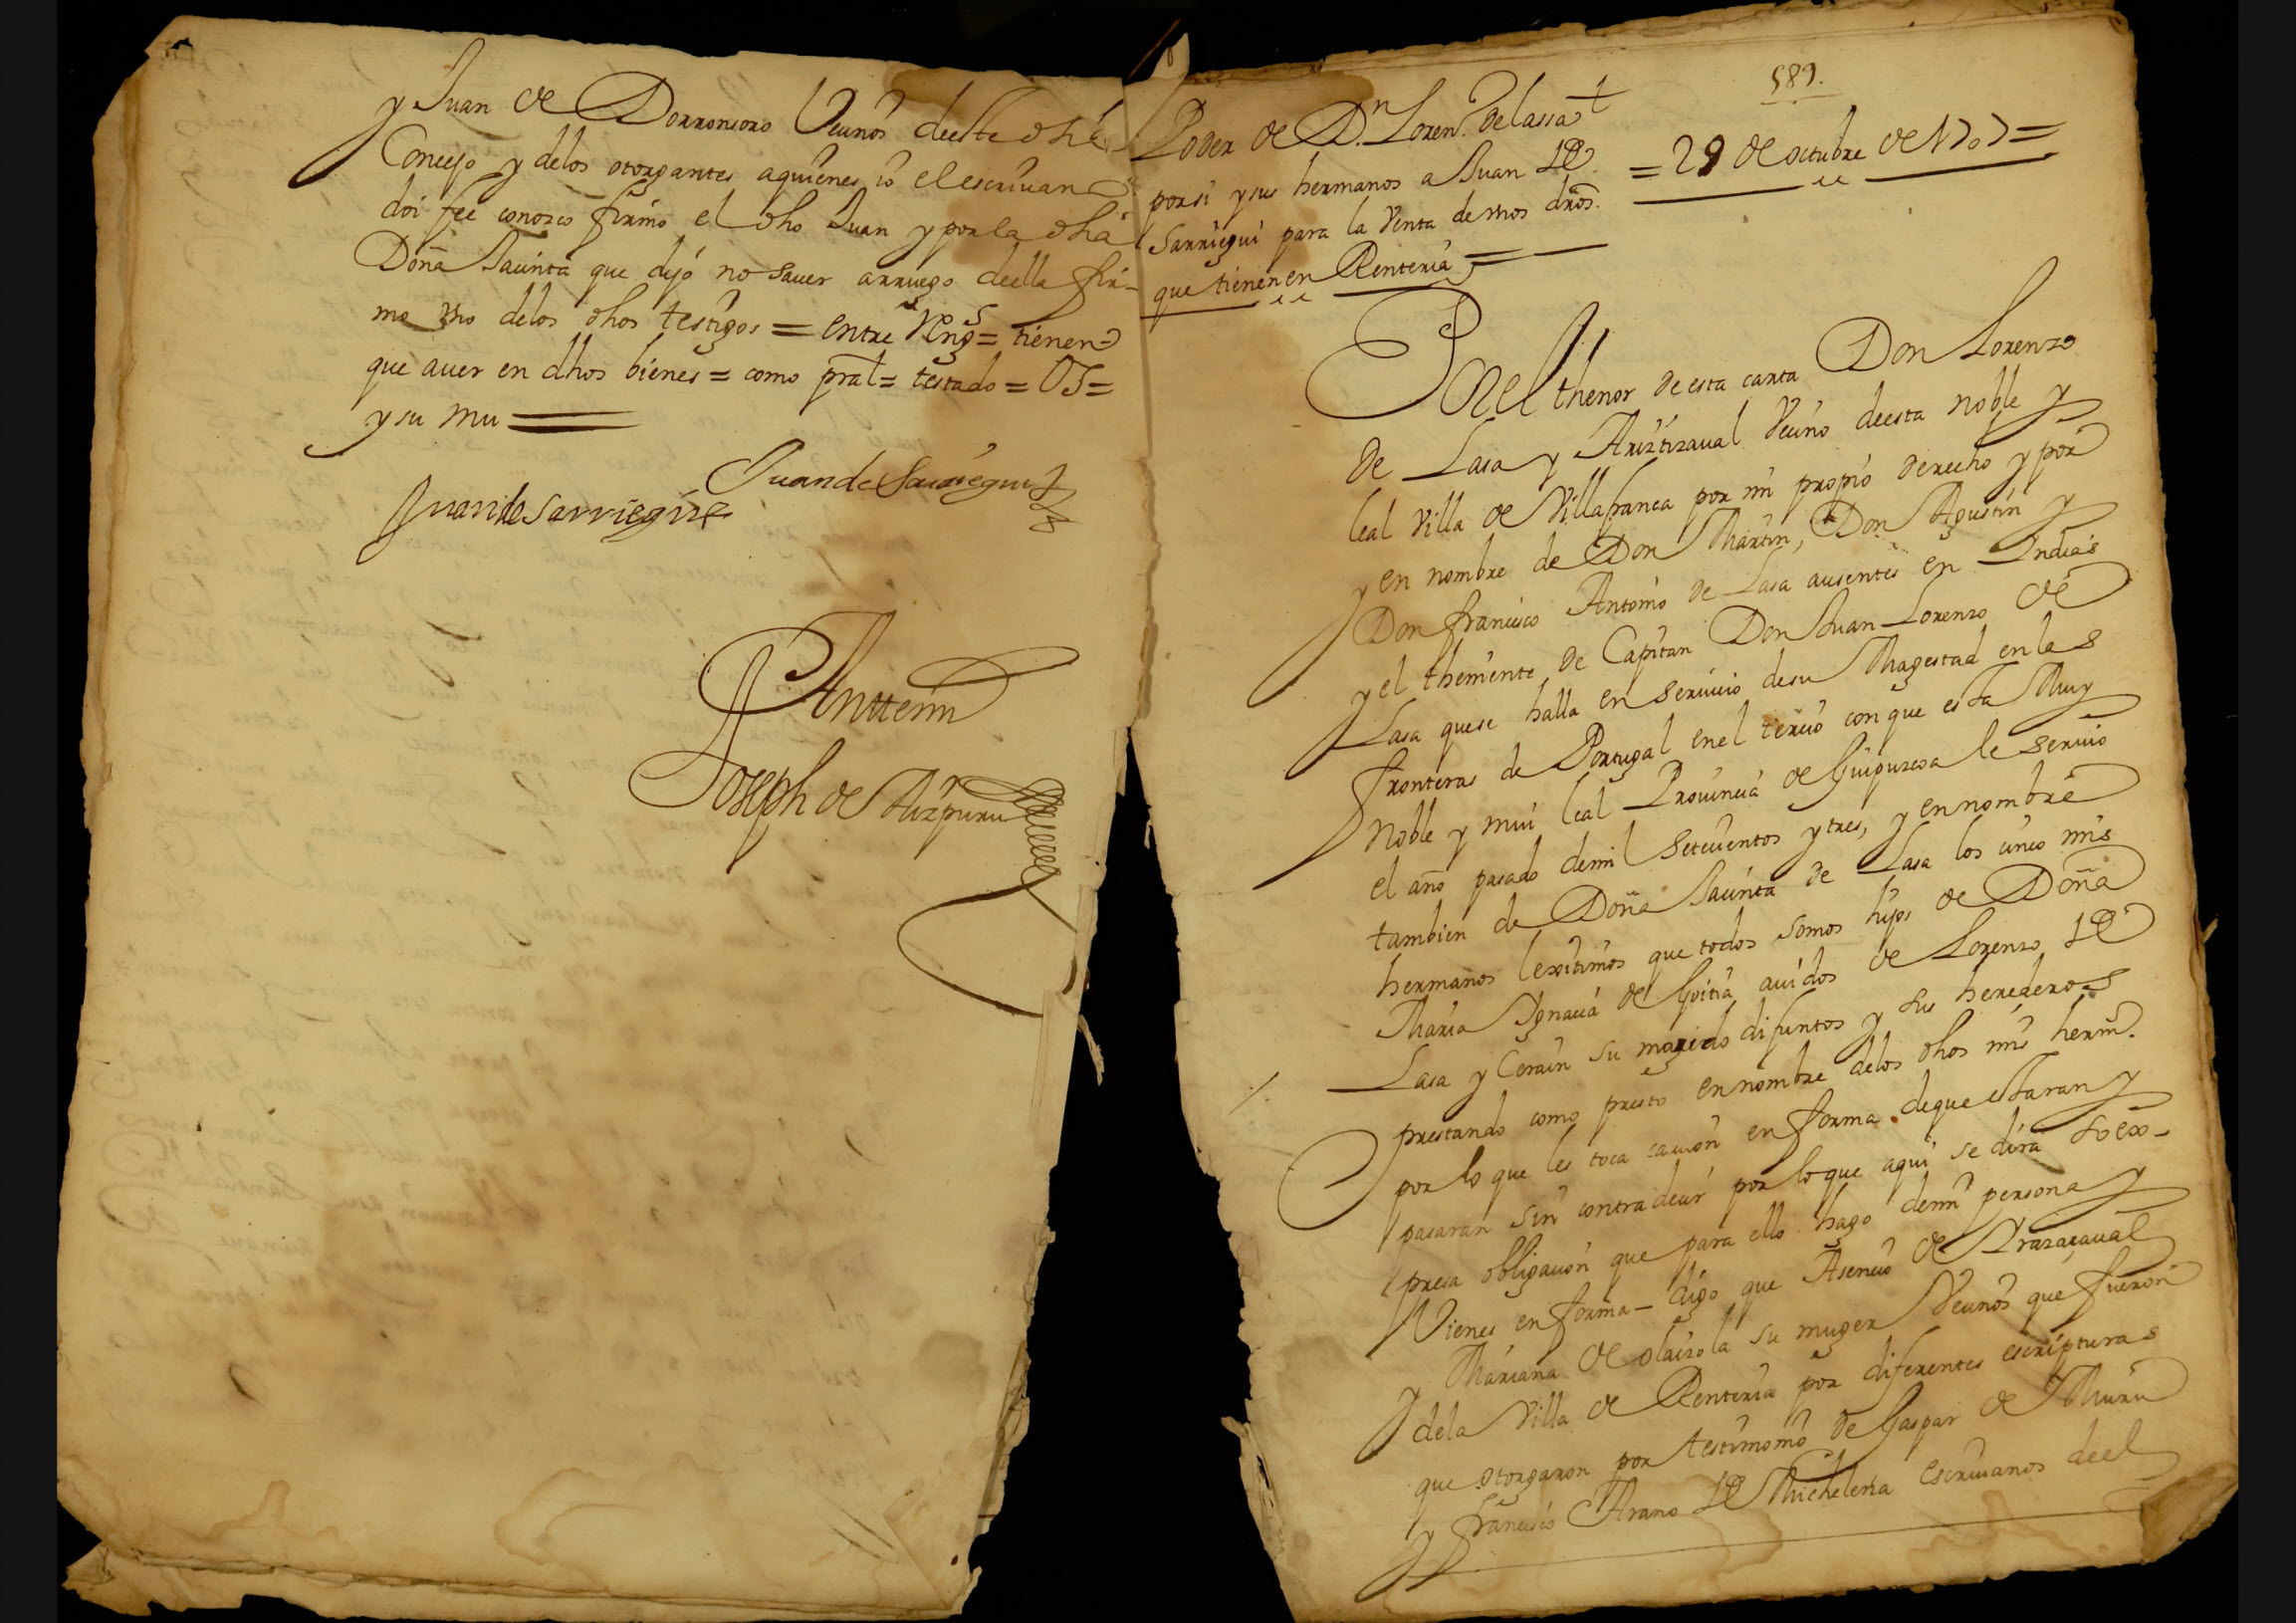 y Juan de Dorronsoro Veçinos de este dho
Conçejo y delos otorgantes aquienes io el escriuano
doi fee conozco firmo el dho Juan y por la dha
Doña Jaçinta que dijo no sauer arruego de ella fir-
mo vno delos dhos testigos = entre Rengs = tienen
que auer en dhos bienes = como pral = testado = OS =
y su mu
Juan de Sarriegui
Juan de Sarriegui
Antemi
Joseph de Aizpuru
589.
Poder de Dn. Loren.º de lassa
por si y sus hermanos a Juan de
Sarriegui para la Venta de vnos dros.
que tienen en Renteria =
= 29 de octubre de 1707 =
Por el thenor de esta carta Don Lorenzo
de Lasa y Ariztizaual Veçino de esta noble y
leal Villa de Villafranca por mi propio derecho y por
y en nombre de Don Martin, Don Agustin y
Don françisco Antonio de Lasa ausentes en Indias
y el theniente de Capitan Don Juan Lorenzo de
Lasa que se halla en seruiçio de su Magestad en las
fronteras de Portugal en el terçio con que esta Muy
Noble y mui leal Prouinçia de Guipuzcoa le siruio
el año pasado de mil seteçientos y tres, y en nombre
tambien de Doña Jaçinta de Lasa los çinco mis
hermanos lexitimos que todos somos hijos de Doña
Maria Ignaçia de Goitia auidos de Lorenzo de
Lasa y Çerain su marido difuntos y sus herederos
prestando como presto en nombre delos dhos mis herm.
por lo que les toca cauçion en forma de que estaran y
pasaran sin contradeçir por lo que aqui se dira so ex-
presa obligaçion que para ello hago de mi persona y
Vienes en forma — digo que Asençio de Arazaçaual
y Mariana de olaizola su muger Veçinos que fueron
dela Villa de Renteria por diferentes escripturas
que otorgaron por testimonio de Gaspar de Muru
y françisco Arano de Michelena escriuanos de el